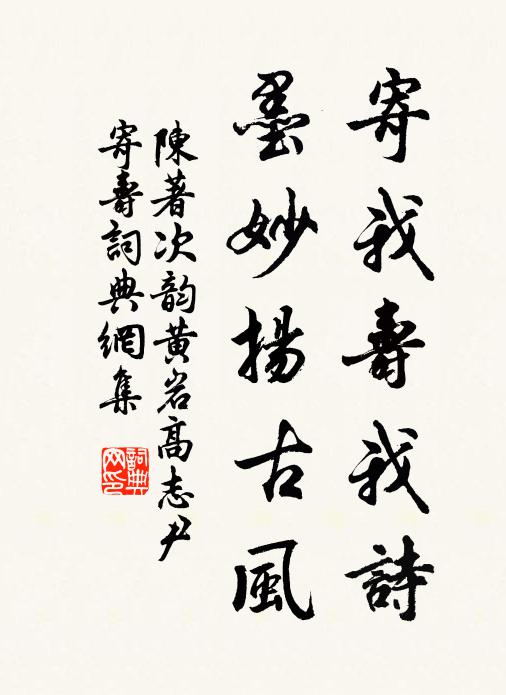 寄我壽我詩
墨妙揚古風
陳著次韵黄岩高志尹
寄壽詞典網集
詞典
网印